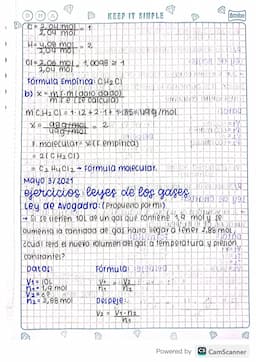 KEEP IT SIMPLE
C = 2,04 mol = 1
2,04 mol
H = 4,08 mol = 2
2,04 mol
Cl = 2,06 mol = 1,0098 ≈ 1
2,04 mol
Fórmula Empírica: CH2Cl
b) x = m r. m (dato dado)
m r e (se calcula)
m CH2Cl = 1·12 + 2·1 + 1·35 = 49 g/mol
x = 98 g/mol = 2
49 g/mol
F. molecular = x (F empírica)
= 2 (CH2Cl)
= C2H4Cl2 → Fórmula molecular.
Mayo 3/2021
ejercicios: leyes de los gases
Ley de Avogadro: (Propuesto por mi)
→ Si se tienen 10L de un gas que contiene 1,9 mol y se
aumenta la cantidad de gas hasta llegar a tener 2,88 mol,
¿cuál será el nuevo volumen del gas a temperatura y presión
constantes?
Datos: Fórmula:
V1 = 10L V1 = V2
V2 = n1 n2
n1 = 1,9 mol
n2 = 2,88 mol Despeje:
V2 = V1·n2
n1
Powered by CamScanner